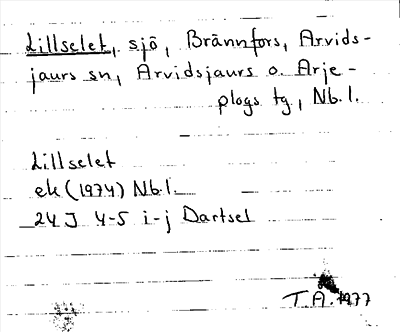 Lillselet, sjö, Brännfors, Arvids-
jaurs sn, Arvidsjaurs o. Arje-
plogs tg, Nb.l.
Lillselet
ek (1974) Nb.l.
24 J 4-5 i-j Dartsel
T.A. 1977